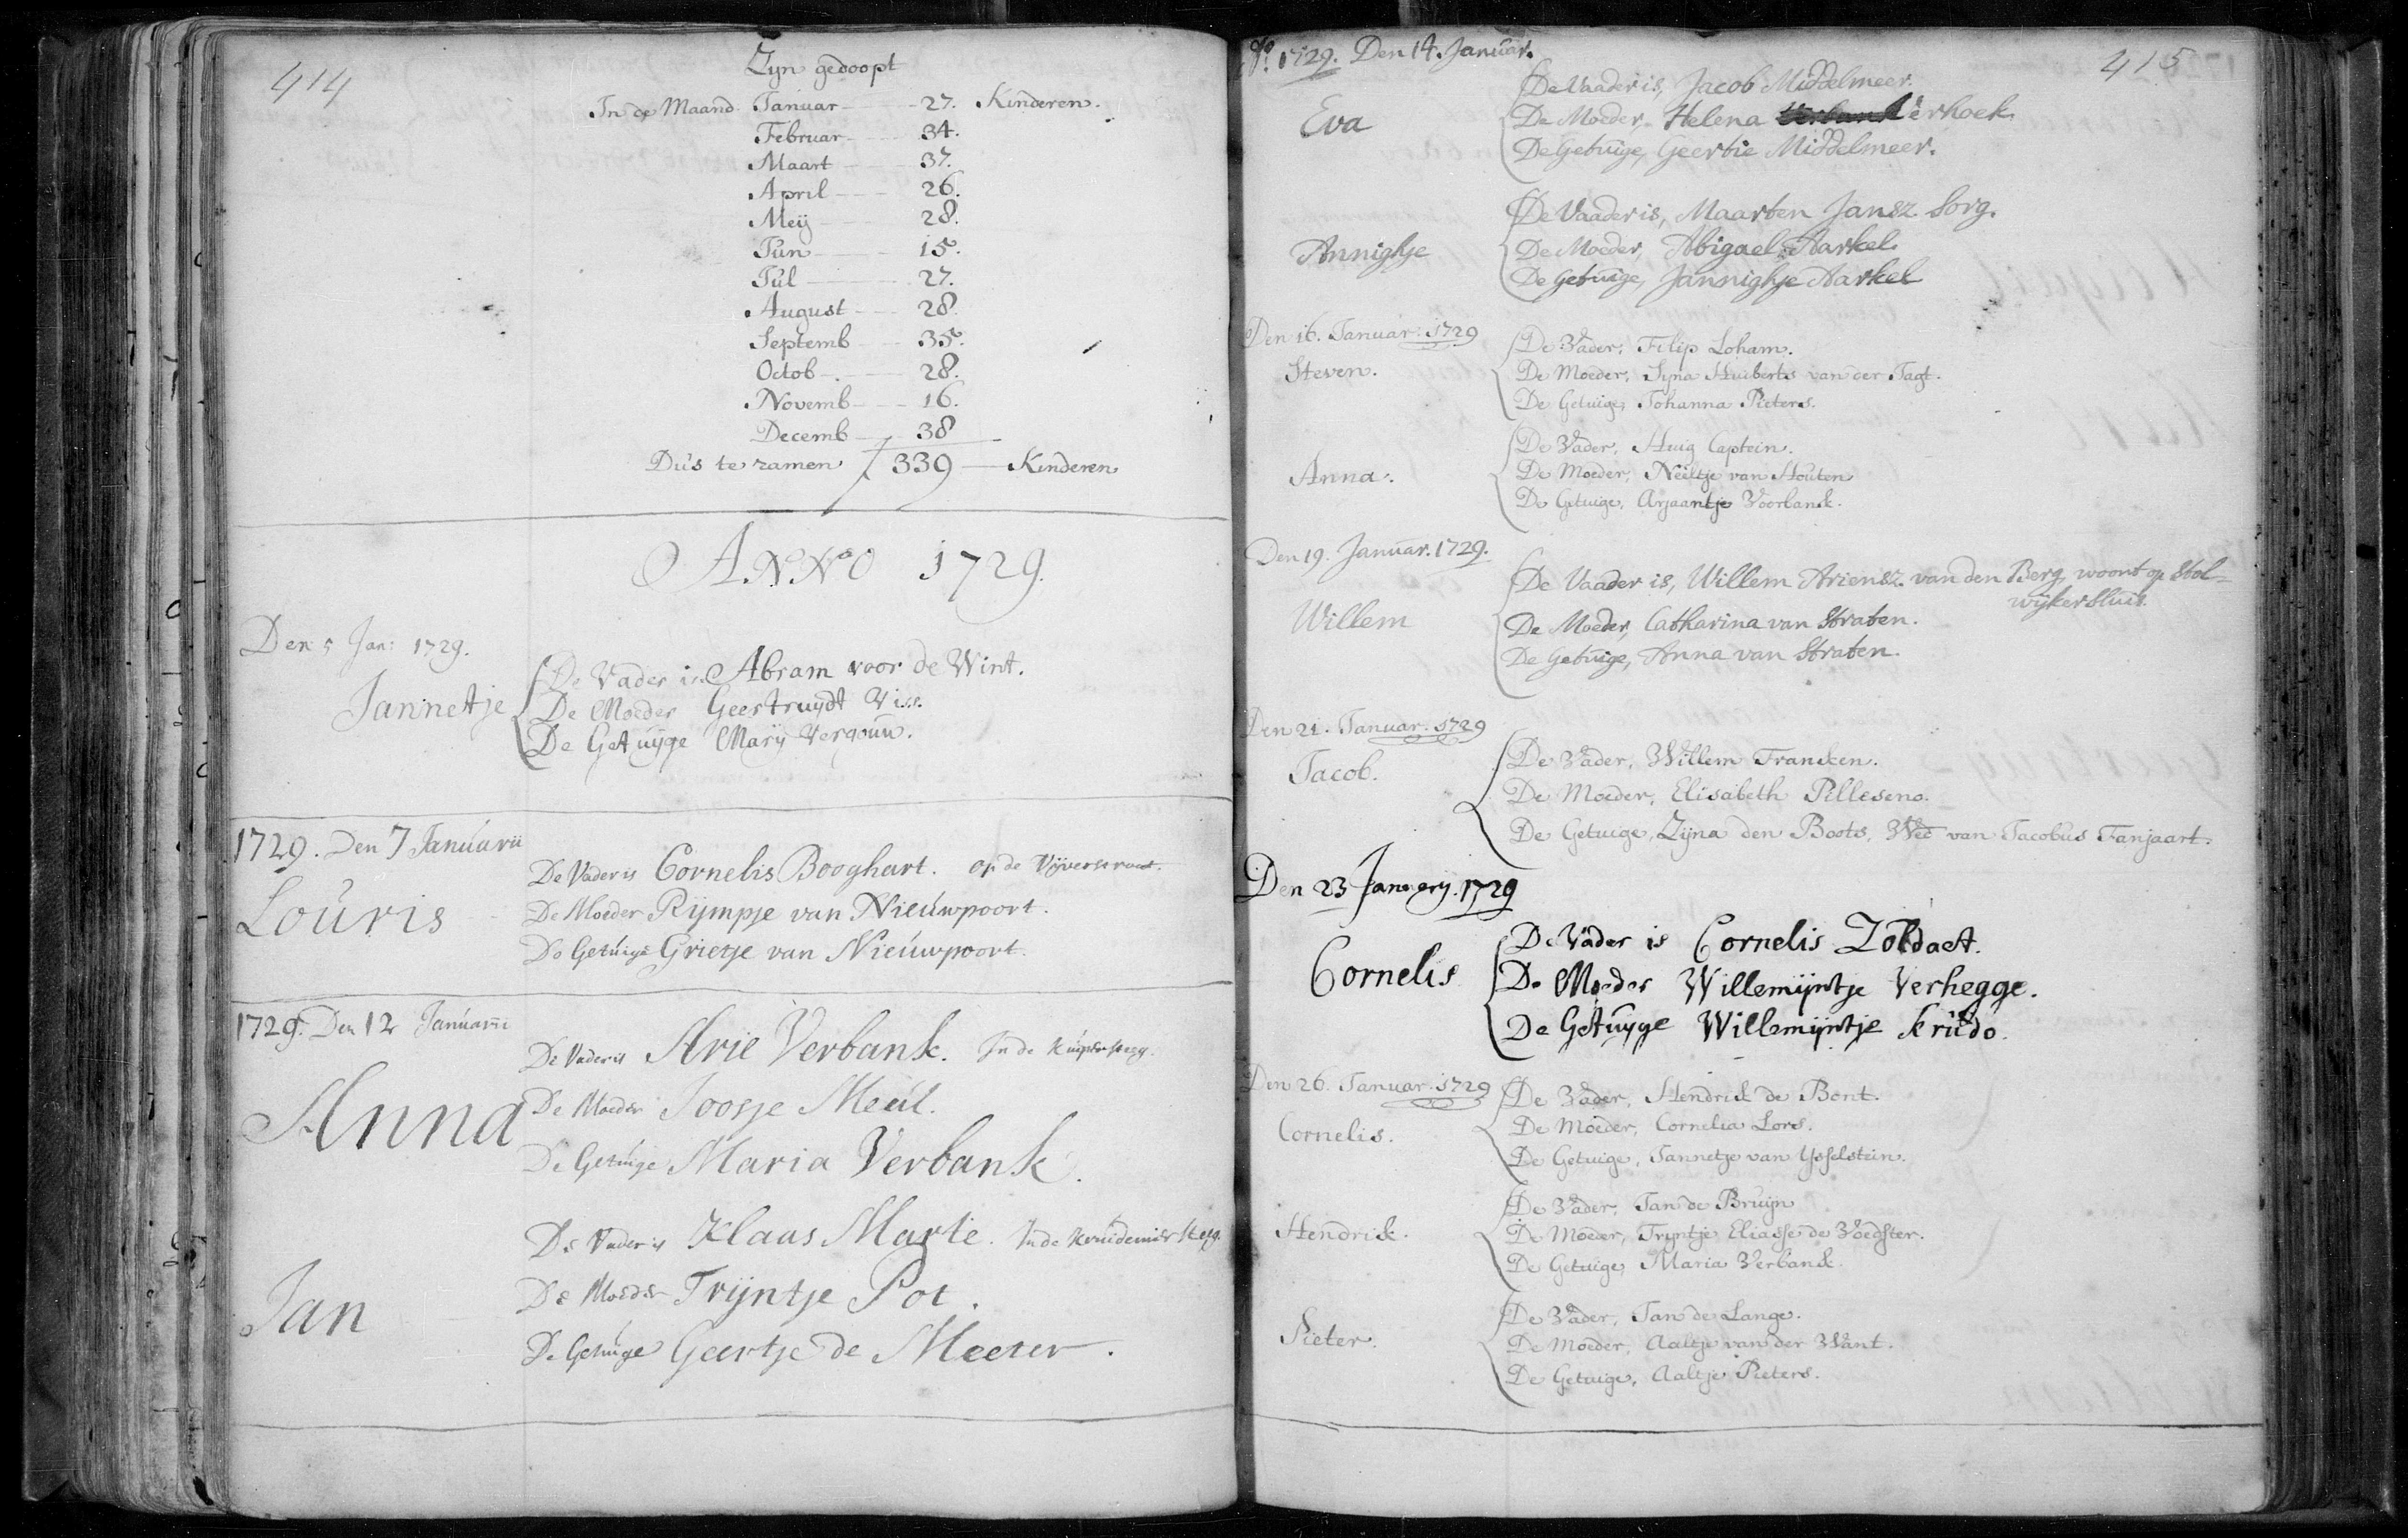 414
Zyn gedoopt
In de Maand Januar 27. Kinderen.
Februar 34.
Maart 37.
April 26.
Meij 28.
Jun 15.
Jul 27.
August 28.
Septemb 35.
Octob 28.
Novemb 16.
Decemb 38
Dus te zamen 339 Kinderen
ANNO 1729.
Den 5 Jan: 1729.
De Vader is Abram voor de Wint.
Jannetje
De Moeder Geertruydt Viss.
De Getuyge Mary Vergouw.
1729. Den 7 Januarii
De Vader is Cornelis Booghart. op de Vijverstraat.
Louris
De Moeder Rijmpje van Nieuwpoort.
De Getuige Grietje van Nieuwpoort.
1729. Den 12 Januarii
De Vader is Arie Verbank. In de Kuipersteeg.
Anna
De Moeder Joosje Meul.
De Getuige Maria Verbank.
De Vader is Klaas Marle. In de Kruidenier steeg.
Jan
De Moeder Trijntje Pot.
De Getuige Geertje de Meeter.
Ao. 1729. Den 14. Januar.
415
De Vaader is, Jacob Middelmeer.
Eva
De Moeder, Helena erhoek
De Getuige, Geertie Middelmeer.
De Vaader is, Maarten Jansz. Sorg.
Annighje
De Moeder, Abigael Aarkel
De Getuige, Jannighje Aarkel
Den 16. Januar. 1729
De Vader, Filip Loham.
Steven.
De Moeder, Syna Huiberts van der Tagt.
De Getuige, Johanna Pieters.
De Vader, Huig Captein.
Anna.
De Moeder, Neeltje van Houten
De Getuige, Arjaantje Voorbank.
Den 19. Januar. 1729.
De Vaader is, Willem Ariensz. van den Berg, woont op Stol=
wijkersluis.
Willem
De Moeder, Catharina van Straten.
De Getuige, Anna van Straten.
Den 21. Januar. 1729
De Vader, Willem Francken.
Jacob.
De Moeder, Elisabeth Pilleseno.
De Getuige, Zijna den Boots, Wed van Jacobus Fanjaart.
Den 23 Januarij. 1729
De Vader is Cornelis Zoldaet.
Cornelis
De Moeder Willemijntje Verhegge.
De Getuyge Willemijntje Krudo.
Den 26. Januar. 1729
De Vader, Hendrik de Bont.
Cornelis.
De Moeder, Cornelia Lors.
De Getuige, Jannetje van Ysselstein.
De Vader, Jan de Bruijn
Hendrik.
De Moeder, Tryntje Eliasse de Voedster.
De Getuige, Maria Verbank.
De Vader, Jan de Lange.
Pieter.
De Moeder, Aaltje van der Want.
De Getuige, Aaltje Pieters.